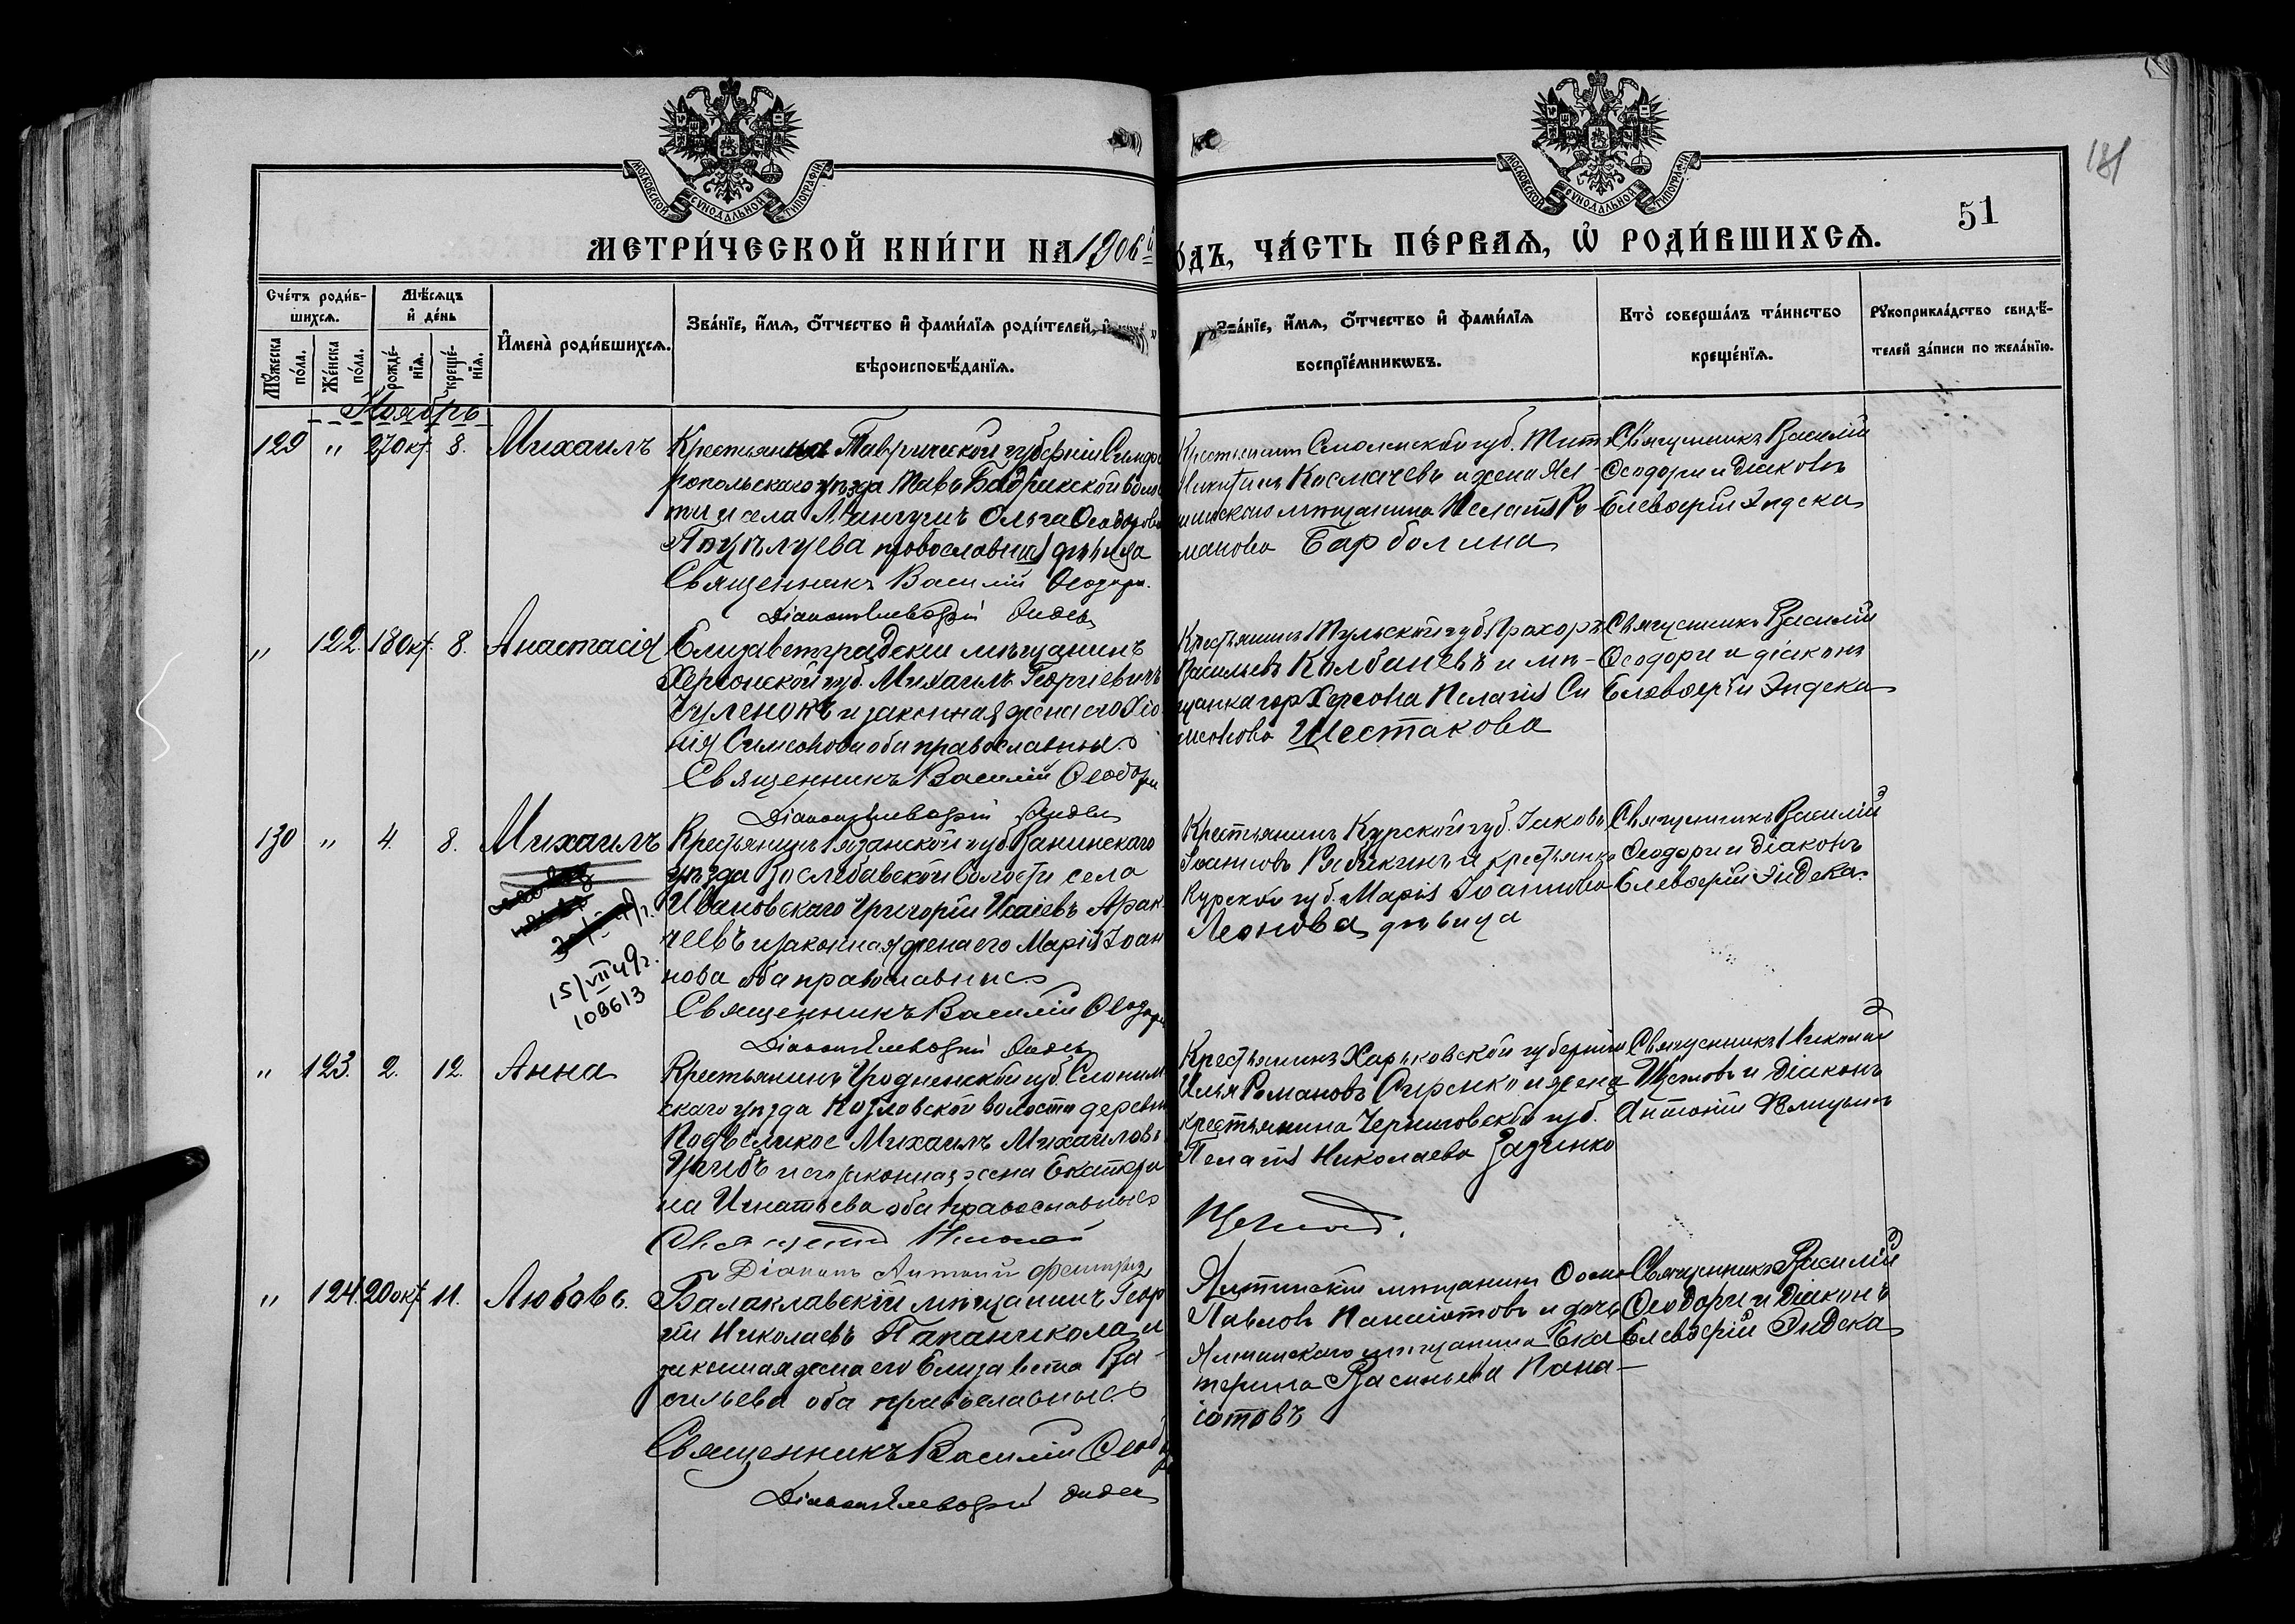 181
51
МОСКОВСКОЙ СѴНОДАЛЬНОЙ ТИПОГРАФІИ
МОСКОВСКОЙ СѴНОДАЛЬНОЙ ТИПОГРАФІИ
МЕТРИ́ЧЕСКОЙ КНИ́ГИ НА 1906й
о́дъ, ЧА́СТЬ ПЕ́РВАѦ, Ѡ҆ РОДИ́ВШИХСѦ.
Сче́тъ роди́в-
шихсѧ.
Мѣ́сѧцъ
и҆ де́нь
Мꙋ́жеска
по́ла.
Же́нска
по́ла.
рожде́-
нїѧ.
креще́-
нїѧ.
И҆мена̀ роди́вшихсѧ.
Зва́нїе, и҆́мѧ, ѻ҆́тчество и҆ фами́лїѧ роди́телей,
вѣроисповѣ́данїѧ.
Зва́нїе, и҆́мѧ, ѻ҆́тчество и҆ фами́лїѧ
воспрїе́мникѡвъ.
Кто̀ соверша́лъ та́инство
креще́нїѧ.
Рꙋкоприкла́дство свидѣ́-
телей за́писи по жела́нїю.
Ноябрь
129 " 27 окт. 8. Михаилъ
Таврической губерніи Симфе
ропольскаго уѣзда волос
ти и села Мангушъ Ольга Ѳеодорова
православная дѣвица
Священникъ Василій Ѳеодори.
Діаконъ Елевѳерій Индека
Смоленской губ. Тит
Космачевъ и жена Ял-
тинскаго мѣщанина Пелагія Ро-
манова Барболина
Священникъ Василій
Ѳеодори и діаконъ
Елевѳерій Индека
" 122. 18 окт. 8. Анастасія
Елизаветградскій мѣщанинъ
Херсонской губ. Михаилъ Георгіевичъ
и законная жена его Хіо
нія Симеонова оба православные.
Священникъ Василій Ѳеодори
Діаконъ Елевѳерій Индека
Крестьянинъ Тульской губ. Прохоръ
Васильевъ Колбаневъ и мѣ-
щанка гор. Херсона Пелагія Си
меонова Шестакова
Священникъ Василій
Ѳеодори и діаконъ
Елевѳерій Индека
130 " 4. 8. Михаилъ
15/VII 49г.
108613
Крестьянинъ Рязанской губ.
уѣзда волости села
Ивановскаго Григорій Исаіевъ Арак
чеевъ и законная жена его Марія Іоан
нова оба православные
Священникъ Василій Ѳеодори
Діаконъ Елевѳерій Индека
Крестьянинъ Курской губ. Іаковъ
Іоанновъ Рябикинъ и крестьянка
Курской губ. Марія Іоаннова
Леонова дѣвица
Священникъ Василій
Ѳеодори и діаконъ
Елевѳерій Индека.
" 123. 2. 12. Анна
Крестьянинъ Гродненской губ. Слоним
скаго уѣзда Козловской волости деревни
Подвеликое Михаилъ Михаиловъ
и его законная жена Екатери
на Игнатьева оба православные
Николай
Діаконъ Антоній
Крестьянинъ Харьковской губерніи
Илья Романовъ и жена
крестьянина Черниговской губ.
Пелагія Николаева
Священникъ Николай
Щегловъ и діаконъ
Антоній
Щегловъ.
" 124. 20 окт. 11. Любовь.
Балаклавскій мѣщанинъ Геор
гій Николаевъ Папаникола и
законная жена его Елизавета Ва-
сильева оба православные.
Священникъ Василій Ѳеодори
Діаконъ Елевѳерій Индека
Ялтинскій мѣщанинъ Ѳома
Павловъ Панаіотовъ и дочь
Ялтинскаго мѣщанина Ека
терина Васильева Пана-
іотовъ
Священникъ Василій
Ѳеодори и діаконъ
Елевѳерій Индека